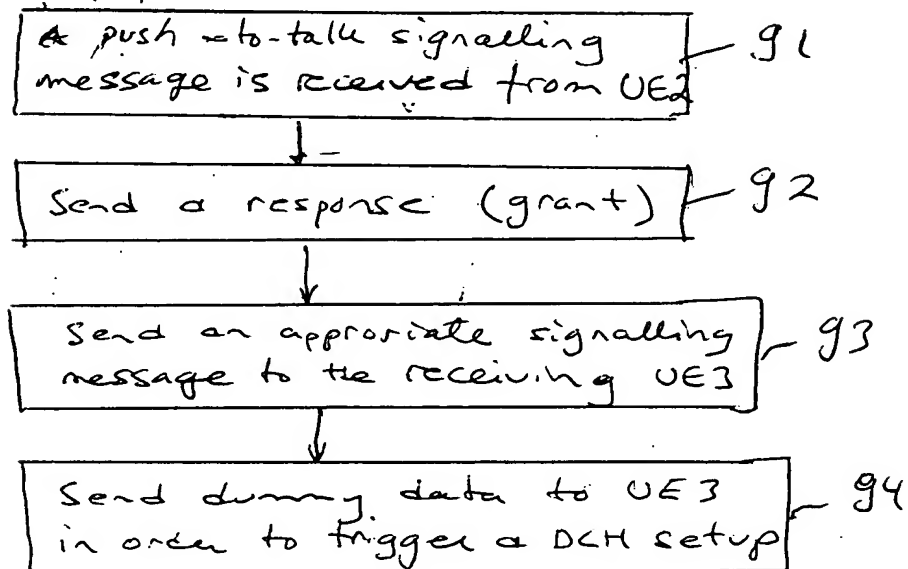 A push-to-talk signalling
message is received from UE2
g1
Send a response (grant)
g2
Send an approriate signalling
message to the receiving UE3
g3
Send dummy data to UE3
in order to trigger a DCH setup
g4